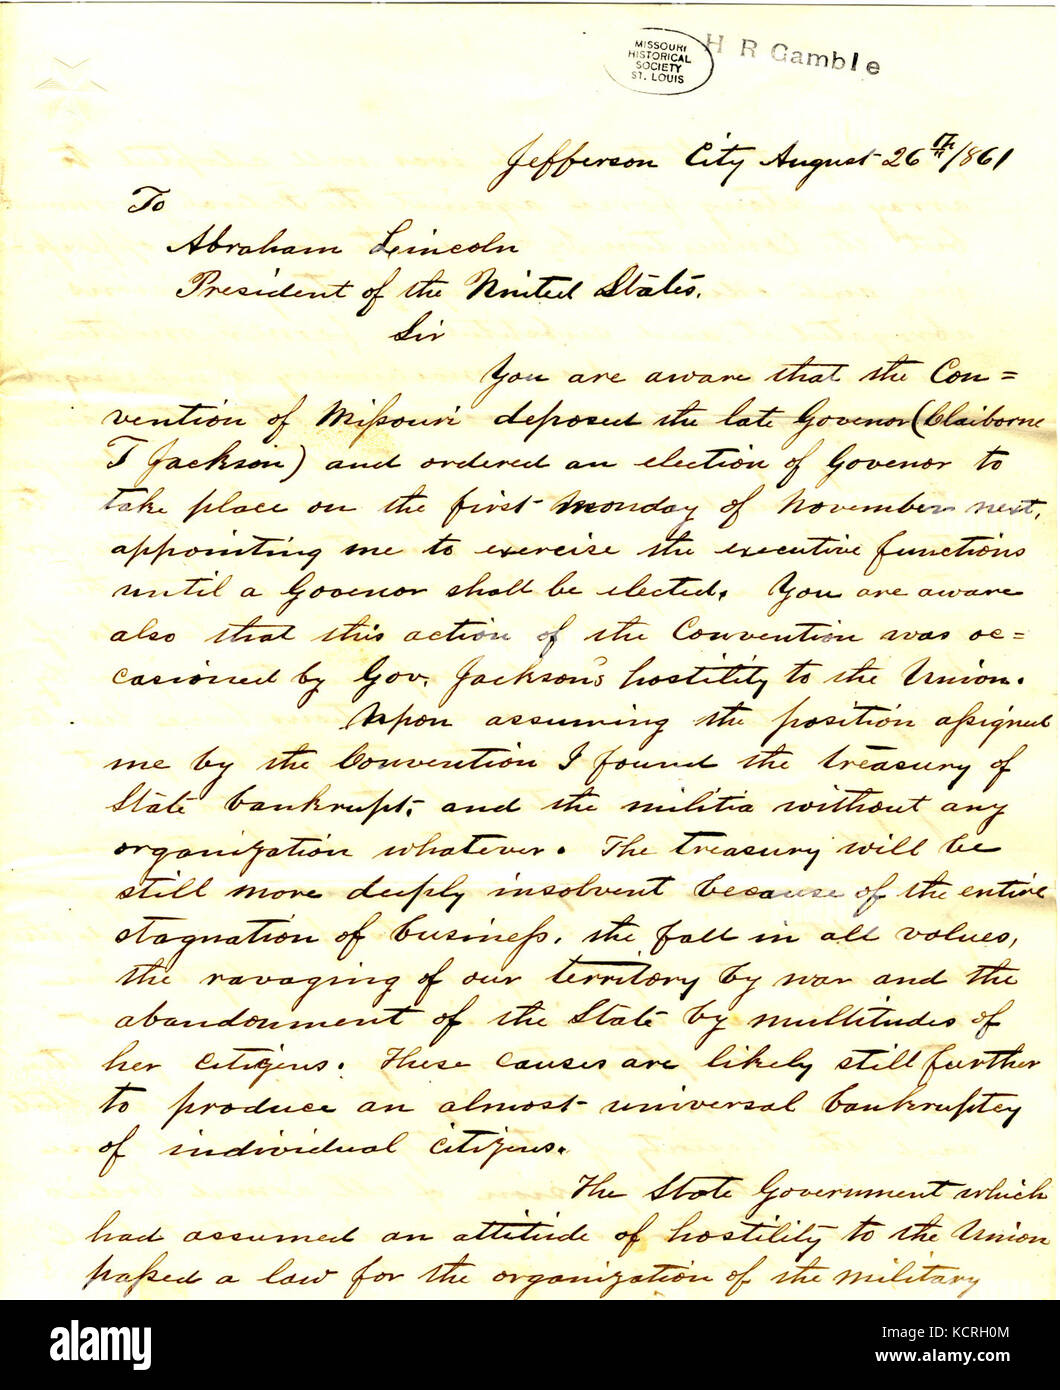 MISSOURI
HISTORICAL
SOCIETY
ST. LOUIS
H R Gamble
Jefferson City August 26th/1861
To
Abraham Lincoln
President of the United States.
Sir
You are aware that the Con=
vention of Missouri deposed the late Govenor (Claiborne
T Jackson) and ordered an election of Govenor to
take place on the first Monday of November next,
appointing me to exercise the executive functions
until a Govenor shall be elected. You are aware
also that this action of the Convention was oc=
casioned by Gov. Jackson's hostility to the Union.
Upon assuming the position assigned
me by the Convention I found the treasury of
State bankrupt, and the militia without any
organization whatever. The treasury will be
still more deeply insolvent because of the entire
stagnation of business, the fall in all values,
the ravaging of our territory by war and the
abandonment of the State by multitudes of
her citizens. These causes are likely still further
to produce an almost universal bankruptcy
of individual citizens.
The State Government which
had assumed an attitude of hostility to the Union
passed a law for the organization of the military
alamy
Image ID: KCRH0M
www.alamy.com